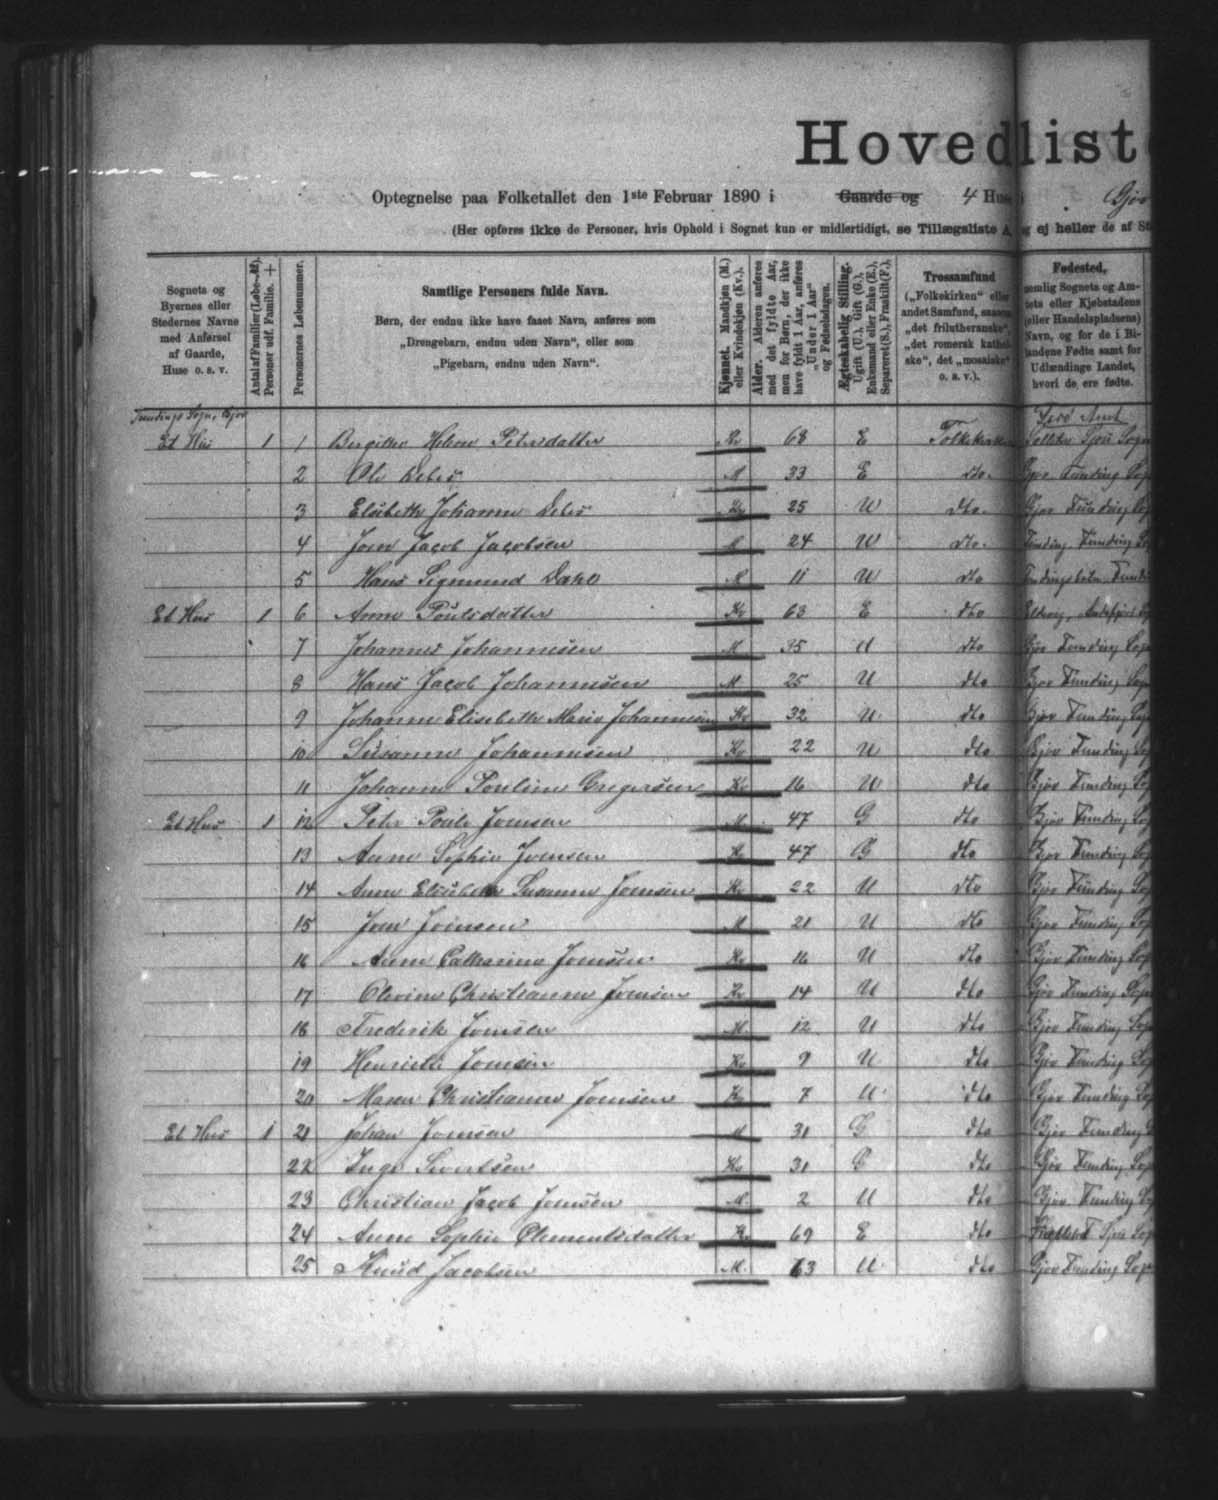 Hovedliste
Optegnelse paa Folketallet den 1ste Februar 1890 i Gaarde og 4 Huse i Gjov
(Her opføres ikke de Personer, hvis Ophold i Sognet kun er midlertidigt, se Tillægsliste A, og ej heller de af
Sognets og Byernes eller Stedernes Navne med Anførsel af Gaarde, Huse o. s. v.
Antal af Familier (Løbe-№). Personer udf. Familie. +
Personernes Løbenummer.
Samtlige Personers fulde Navn.
Børn, der endnu ikke have faaet Navn, anføres som
„Drengebarn, endnu uden Navn“, eller som
„Pigebarn, endnu uden Navn“.
Kjønnet. Mandkjøn (M.) eller Kvindekjøn (Kv.).
Alder. Alderen anføres med det fyldte Aar, men for Børn, der ikke have fyldt 1 Aar, anføres „Under 1 Aar“ og Fødselsdagen.
Ægteskabelig Stilling. Ugift (U.), Gift (G.), Enkemand eller Enke (E.), Separeret (S.), Fraskilt (F.).
Trossamfund („Folkekirken“ eller andet Samfund, saasom „det frilutheranske“, „det romersk katholske“, det „mosaiske“ o. s. v.).
Fødested, nemlig Sognets og Amtets eller Kjøbstadens (eller Handelspladsens) Navn, og for de i Bilandene Fødte samt for Udlændinge Landet, hvori de ere fødte.
Fundings Sogn, Gjov
Et Hus 1 1 Birgitte Helene Petersdatter Kv 68 E Folkekirken
2 Ole Debes M 33 E dto. Gjov Funding Sogn
3 Elisabeth Johanne Debes Kv 25 U dto. Gjov Funding Sogn
4 Joen Jacob Jacobsen M 24 U dto. Funding Funding
5 Hans Sigmund Dahl M 11 U dto
Et Hus 1 6 Anne Poulsdatter Kv 63 E dto
7 Johannes Johannesen M 35 U dto Gjov Funding Sogn
8 Hans Jacob Johannesen M 25 U dto Gjov Funding Sogn
9 Johanne Elisebeth Maria Johannesen Kv 32 U dto Gjov Funding Sogn
10 Susanne Johannesen Kv 22 U dto Gjov Funding Sogn
11 Johanne Pouline Gregersen Kv 16 U dto Gjov Funding Sogn
Et Hus 1 12 Peter Poul Joensen M 47 G dto Gjov Funding Sogn
13 Anne Sophie Joensen Kv 47 G dto Gjov Funding Sogn
14 Anne Elisabeth Susanne Joensen Kv 22 U dto Gjov Funding Sogn
15 Joen Joensen M 21 U dto Gjov Funding Sogn
16 Anne Catharine Joensen Kv 16 U dto Gjov Funding Sogn
17 Olevine Christianne Joensen Kv 14 U dto Gjov Funding Sogn
18 Frederik Joensen M 12 U dto Gjov Funding Sogn
19 Henriette Joensen Kv 9 U dto Gjov Funding Sogn
20 Maren Christianne Joensen Kv 7 U dto Gjov Funding Sogn
Et Hus 1 21 Johan Joensen M 31 G dto Gjov Funding
22 Inge Sivertsen Kv 31 G dto Gjov Funding Sogn
23 Christian Jacob Joensen M. 2 U dto Gjov Funding Sogn
24 Anne Sophie Clementsdatter Kv 69 E dto
25 Knud Jacobsen M. 63 U dto Gjov Funding Sogn